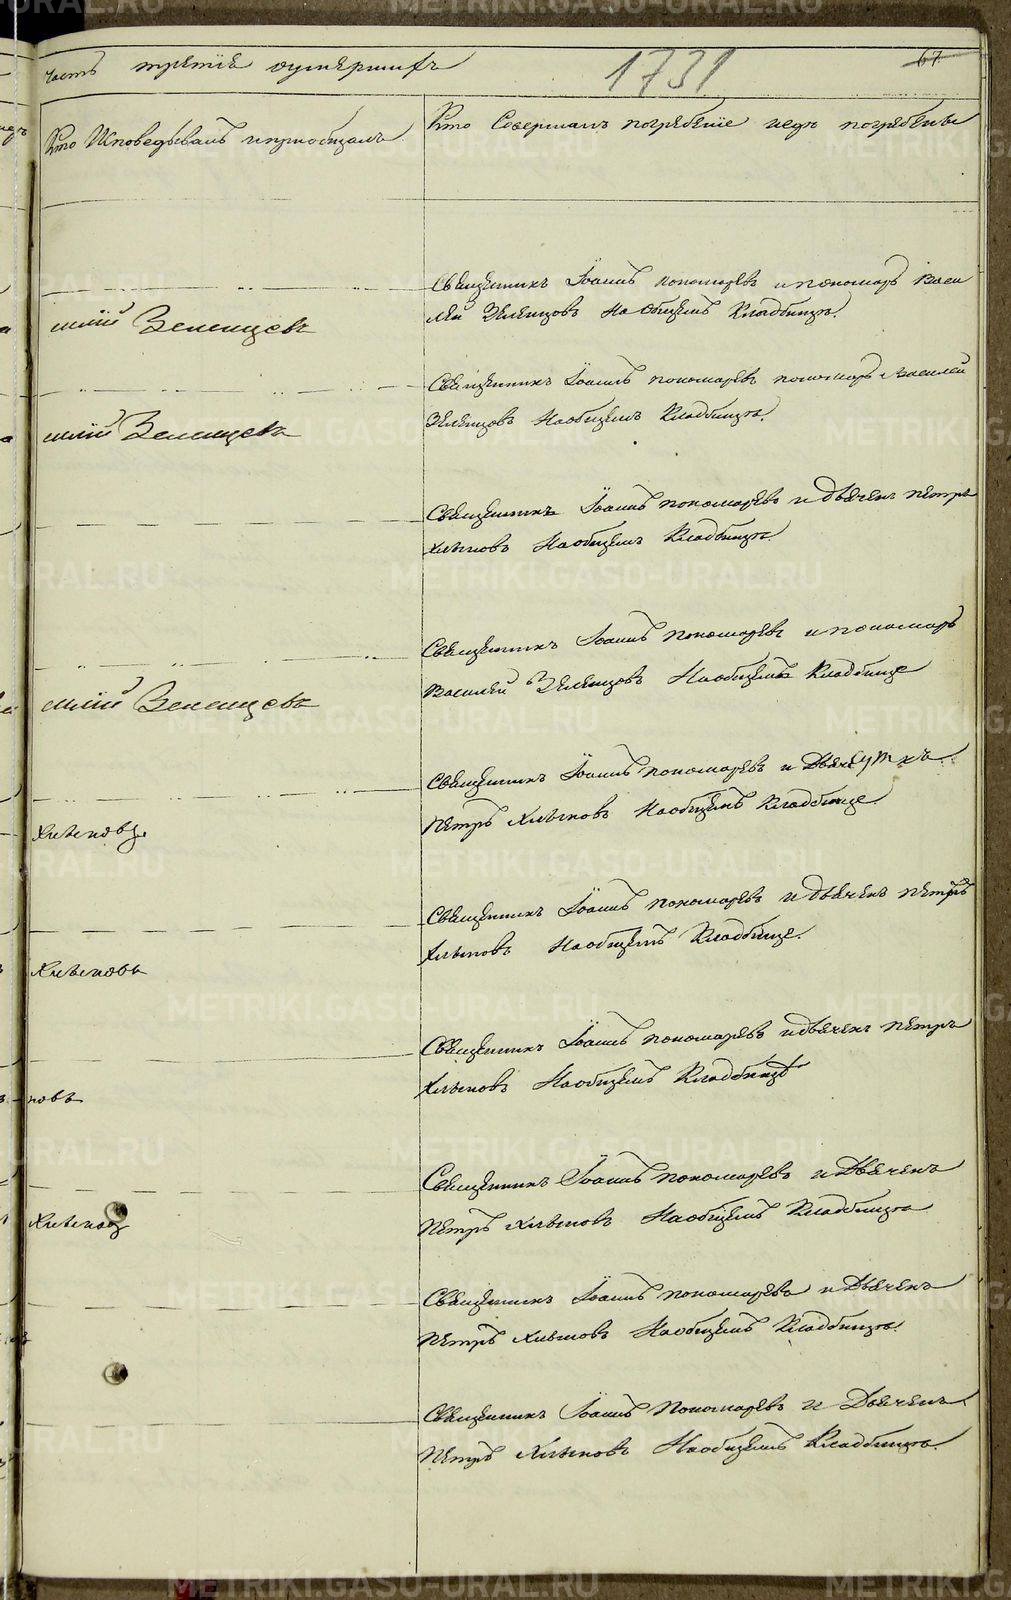 часть третіе оумершихъ
1731
67
Кто Исповедывалъ ипріобщалъ
Кто Совершалъ погребеніе игдѣ погребены
Священникъ Іоаннъ пономаревъ и пономарь Васи
лей Зеленцовъ На Общемъ Кладбищѣ.
силій Зеленцевъ
Священникъ Іоаннъ пономаревъ пономарь Василей
Зеленцовъ Наобщемъ Кладбищѣ.
силій Зеленцевъ
Священникъ Іоаннъ пономаревъ и дьячекъ петръ
Хлыновъ Наобщемъ Кладбищѣ.
Священникъ Іоаннъ пономаревъ и пономарь
Василей Зеленцовъ Наобщемъ Кладбище
силій Зеленцевъ
Священникъ Іоаннъ пономаревъ и
петръ Хлыновъ Наобщемъ Кладбище.
Хлыновъ.
Священникъ Іоаннъ пономаревъ и дьячекъ петръ
Хлыновъ Наобщемъ Кладбище.
Хлыновъ
Священникъ Іоаннъ пономаревъ идьячекъ петръ
Хлыновъ Наобщемъ Кладбищѣ
новъ
Священникъ Іоаннъ пономаревъ и Дьячекъ
петръ Хлыновъ Наобщемъ Кладбищѣ
Хлыновъ
Священникъ Іоаннъ пономаревъ и Дьячекъ
петръ Хлыновъ Наобщемъ Кладбищѣ.
Священникъ Іоаннъ пономаревъ и Дьячекъ
петръ Хлыновъ Наобщемъ Кладбищѣ.
METRIKI.GASO-URAL.RU